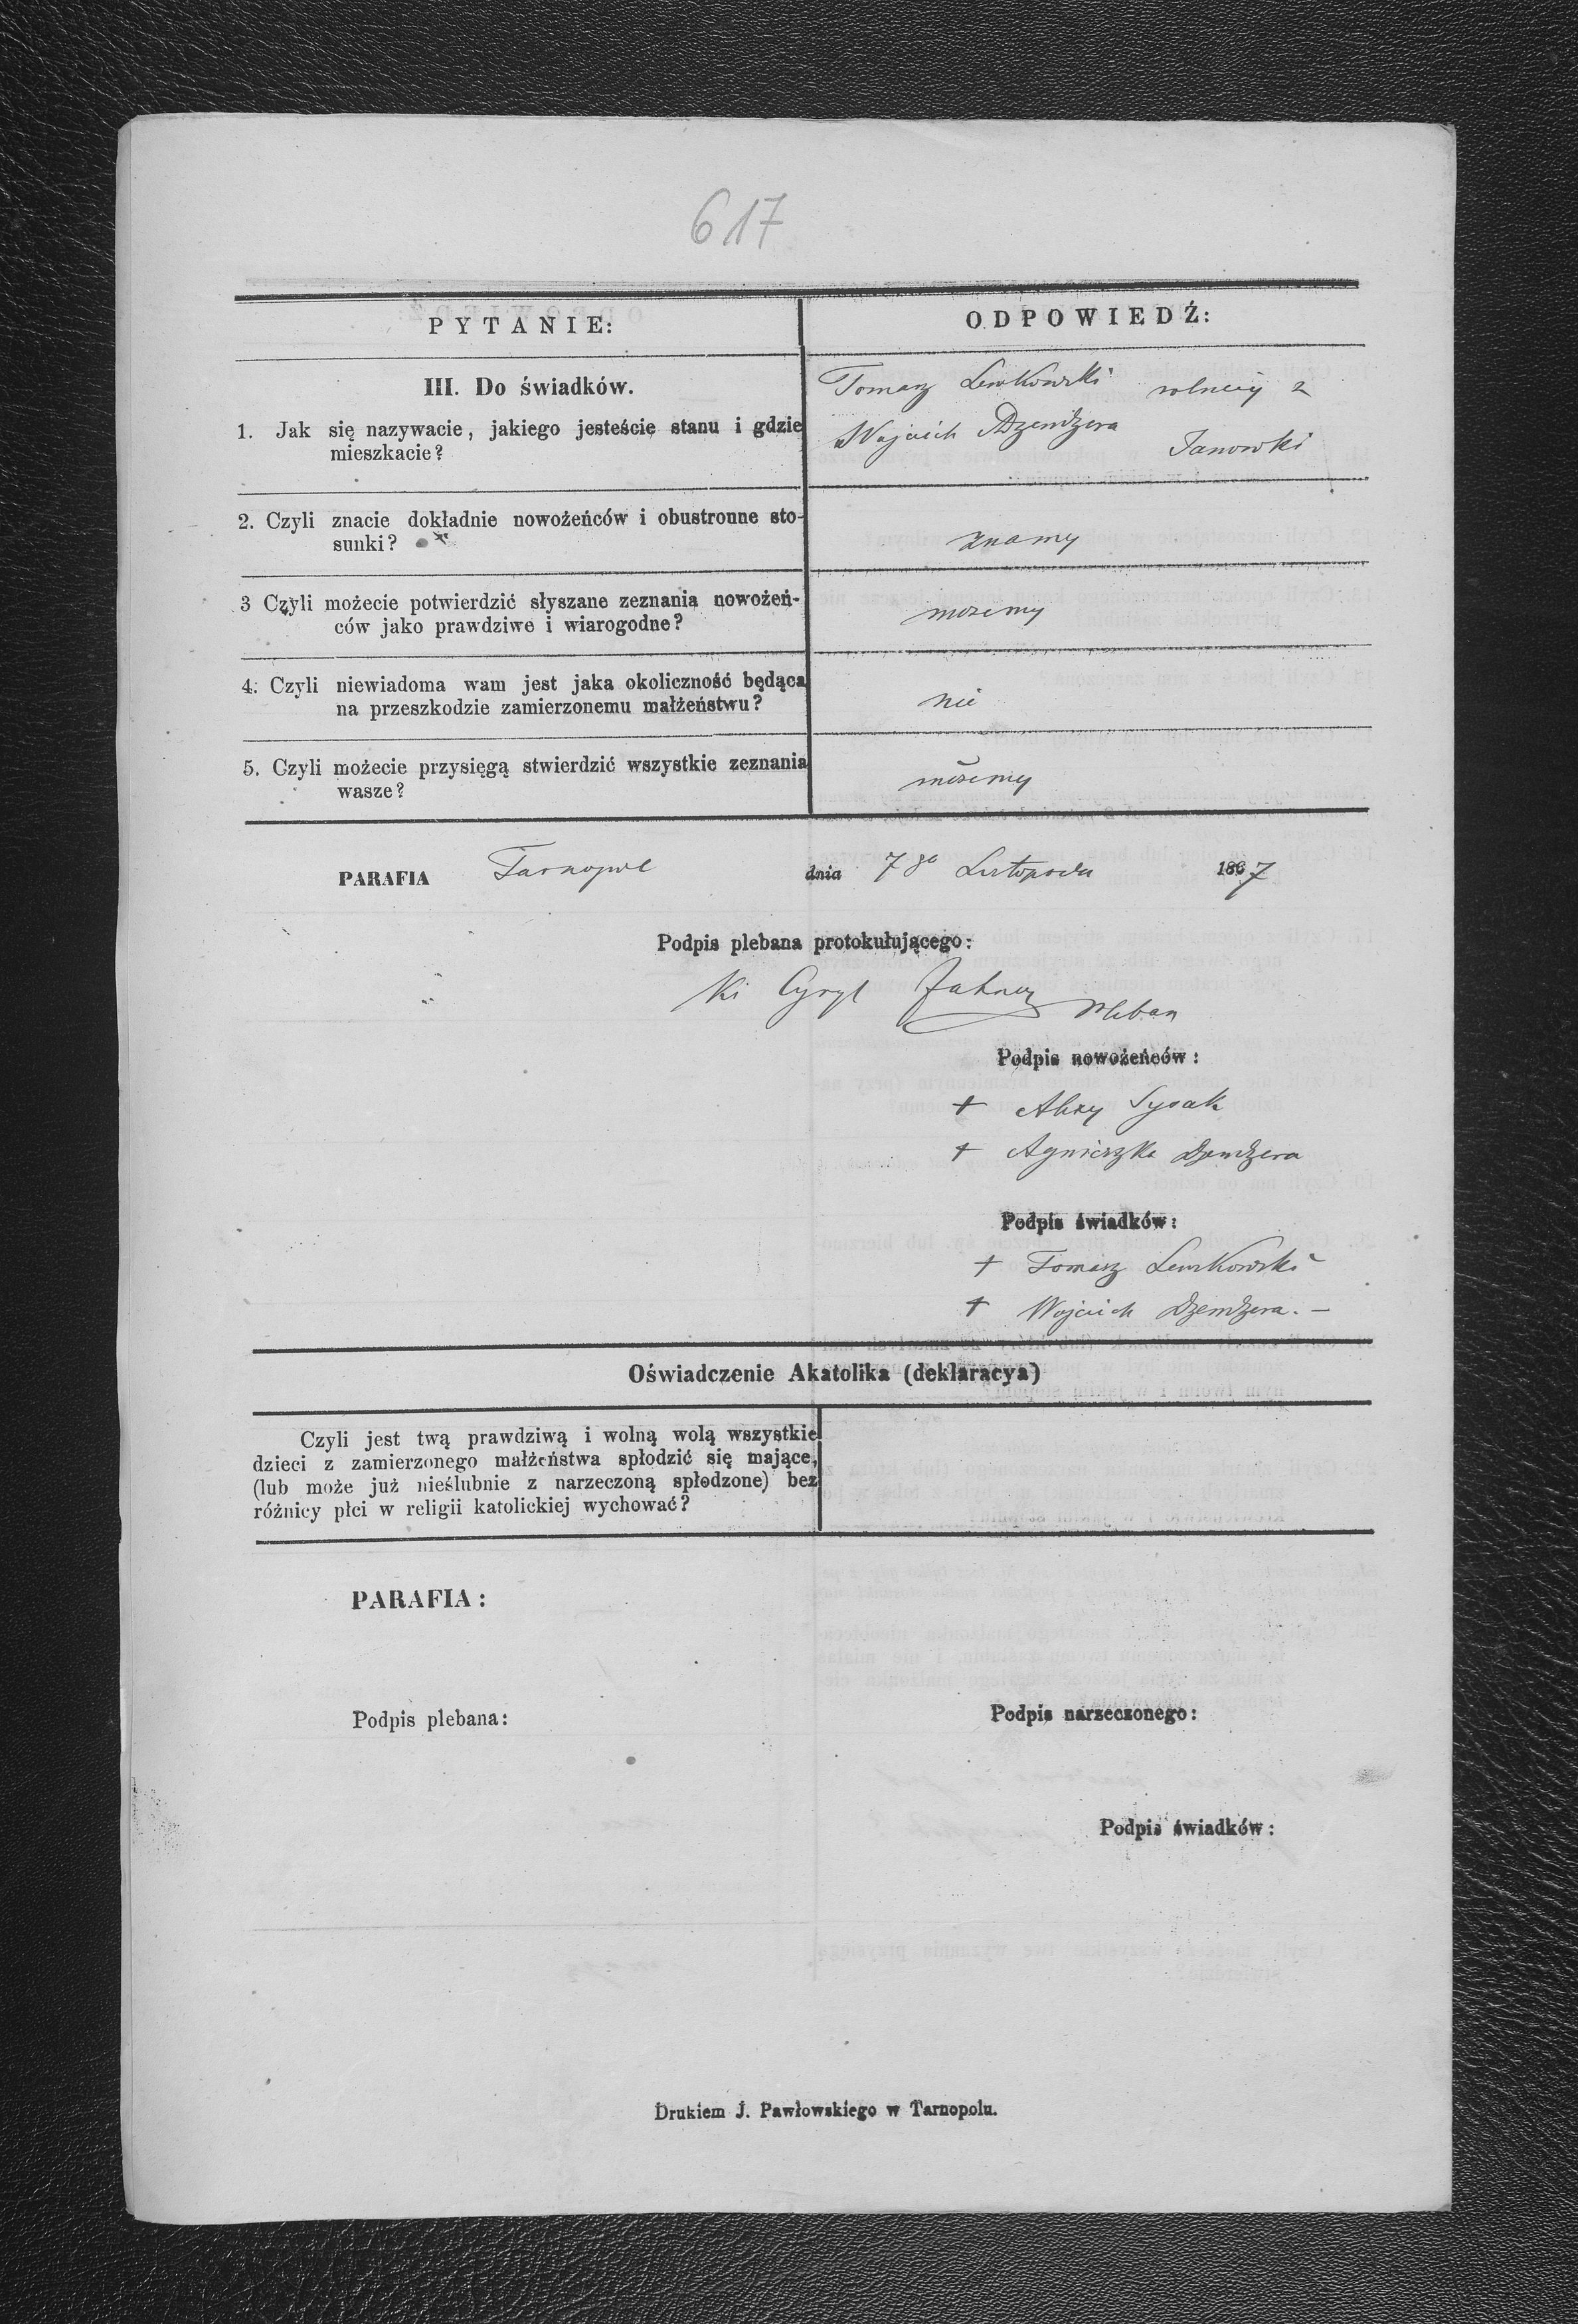 617
PYTANIE:
ODPOWIEDŹ:
III. Do świadków.
1. Jak się nazywacie, jakiego jesteście stanu i gdzie
mieszkacie?
Tomasz Lewkowski rolnicy z
Wojciech Dzendzera Janowki
2. Czyli znacie dokładnie nowożeńców i obustronne sto-
sunki?
znamy
3 Czyli możecie potwierdzić słyszane zeznania nowożeń-
ców jako prawdziwe i wiarogodne?
możemy
4. Czyli niewiadoma wam jest jaka okoliczność będąca
na przeszkodzie zamierzonemu małżeństwu?
nie
5. Czyli możecie przysięgą stwierdzić wszystkie zeznania
wasze?
możemy
PARAFIA Tarnopol dnia 7go Listopada 1867
Podpis plebana protokułującego:
Cyryl pleban
Podpis nowożeńców:
+ Sysak
+ Agnieszka Dzendzera
Podpis świadków:
+ Tomasz Lewkowski
+ Wojciech Dzendzera. —
Oświadczenie Akatolika (deklaracya)
Czyli jest twą prawdziwą i wolną wolą wszystkie
dzieci z zamierzonego małżeństwa spłodzić się mające,
(lub może już nieślubnie z narzeczoną spłodzone) bez
różnicy płci w religii katolickiej wychować?
PARAFIA:
Podpis plebana:
Podpis narzeczonego:
Podpis świadków:
Drukiem J. Pawłowskiego w Tarnopolu.